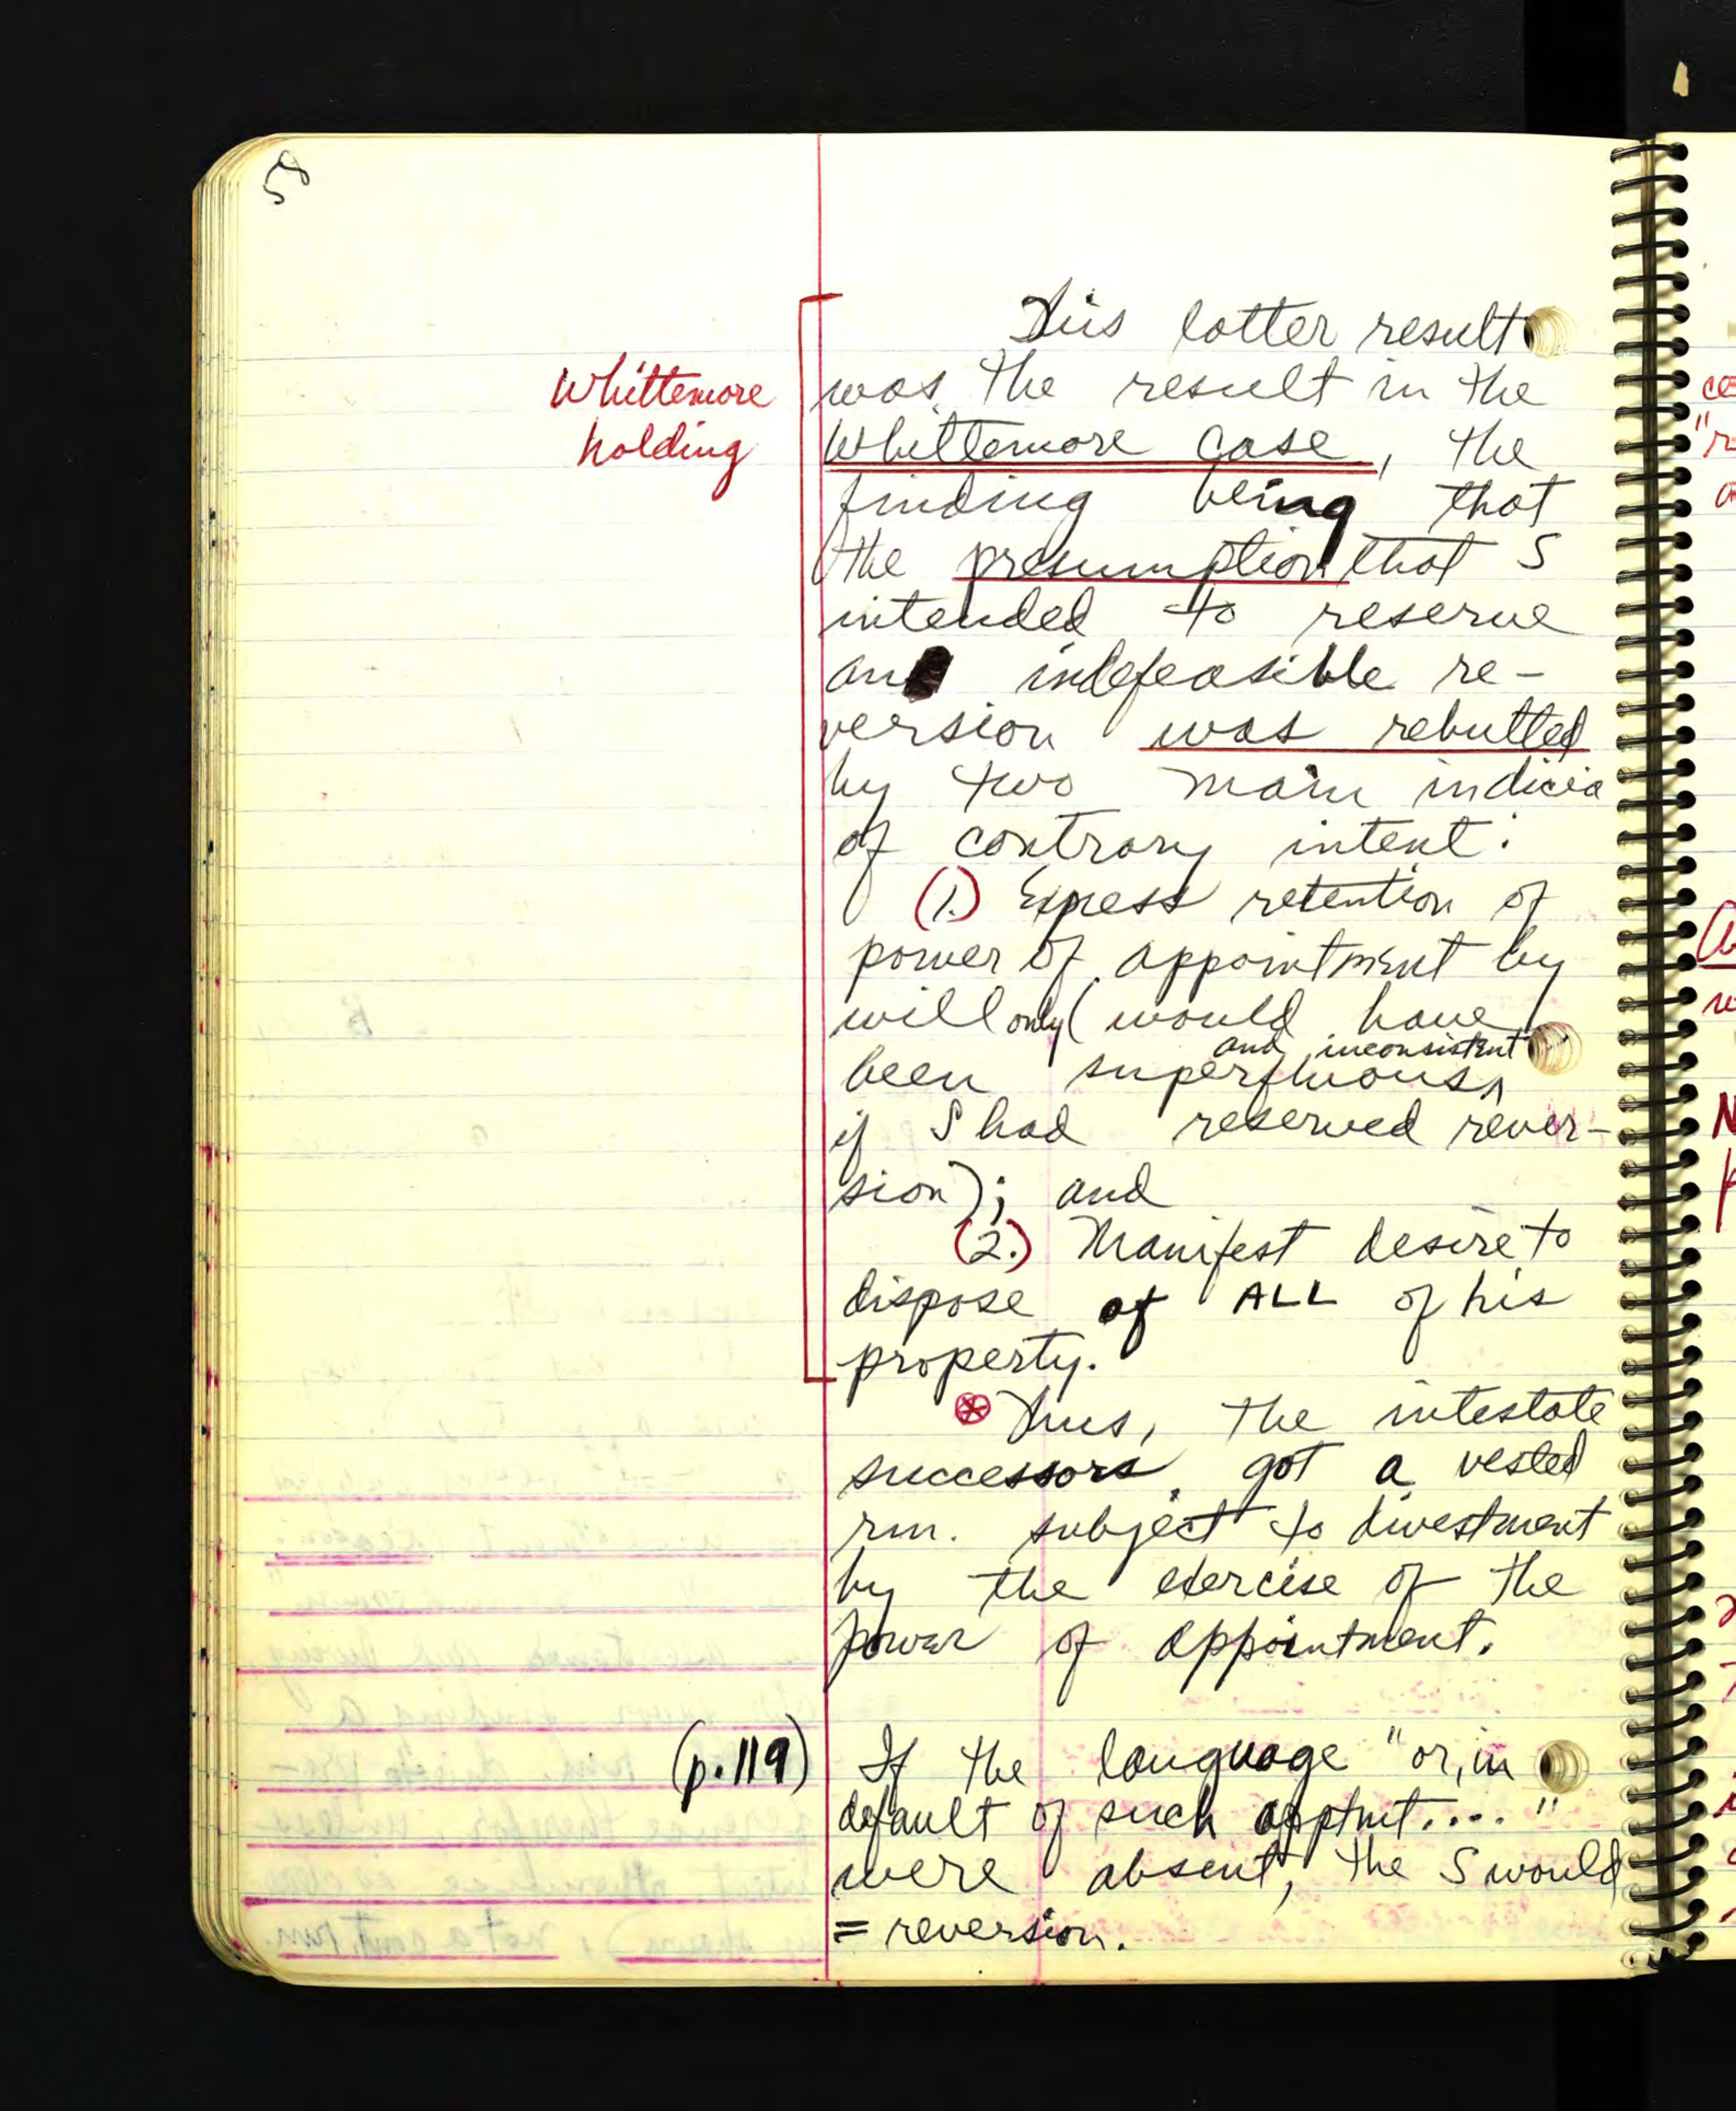 58
This latter result
Whittemore
holding
was the result in the
Whittemore case, the
finding being that
the presumption that S
intended to reserve
an indefeasible re-
version was rebutted
by two main indicia
of contrary intent:
(1.) Express retention of
power of appointment by
will only (would have
been superfluous and inconsistent
if S had reserved rever-
sion); and
(2.) Manifest desire to
dispose of ALL of his
property.
⊛ Thus, the intestate
successors got a vested
rm. subject to divestment
by the exercise of the
power of appointment.
(p. 119)
If the language "or, in
default of such apptmt...."
were absent, the S would
= reversion.